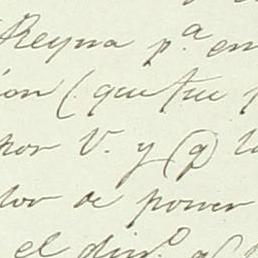 Reyna p.ª en
ón (que fue
por V. y (q) l
lor de poner
el din.º q